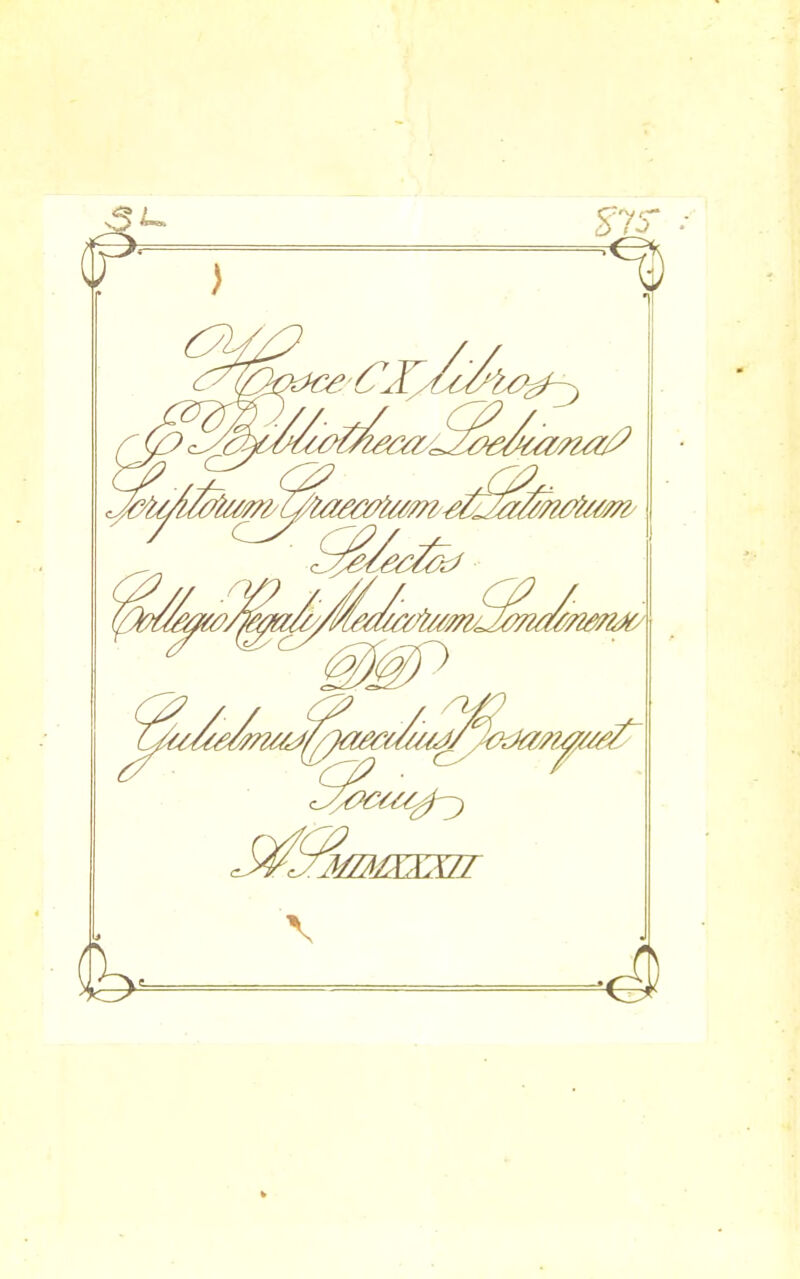 SL 875
Hosce CX Libros
E Bibliotheca Loebiana
Scriptorum Graecorum et Latinorum
Selectos
Collegio Regali Medicorum Londinensi
DD
Gulielmus Caecilius Bosanquet
Socius
A.S. MCMXXXII